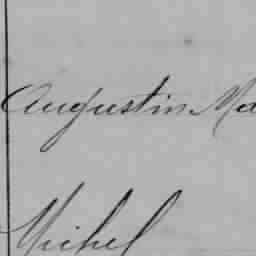 Augustin Ma
Michel